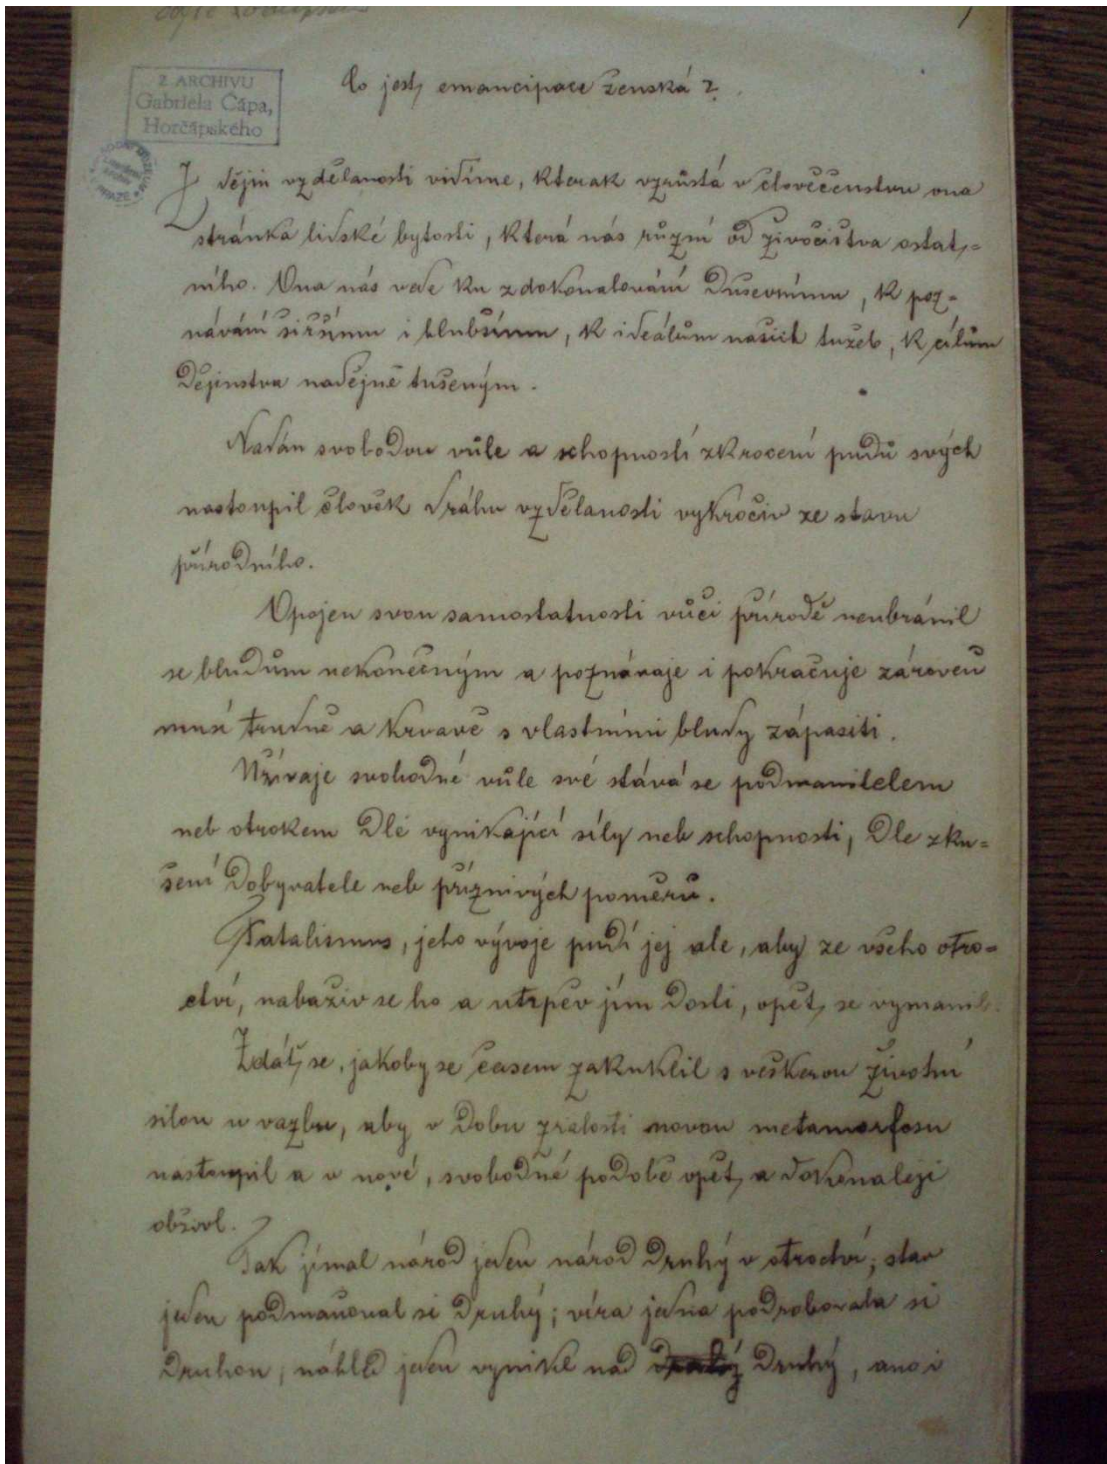 Z ARCHIVU
Gabriela Čápa,
Horčápského
Co jest, emancipace ženská?
Z dějin vzdělanosti vidíme, kterak vzrůstá v člověčenstvu ona
stránka lidské bytosti, která nás různí od živočišstva ostat,=
ního. Ona nás vede ku zdokonalování duševnímu, k poz=
návání širšímu i hlubšímu, k ideálům našich tužeb, k cílům
dějinstva nadějně tušeným.
Nadán svobodou vůle a schopností zkrocení pudů svých
nastoupil člověk dráhu vzdělanosti vykročiv ze stavu
přírodního.
Opojen svou samostatností vůči přírodě neubránil
se bludům nekonečným a poznávaje i pokračuje zároveň
musí trudně a krvavě s vlastními bludy zápasiti.
Užívaje svobodné vůle své stává se podmanitelem
neb otrokem dle vynikající síly neb schopnosti, dle zku=
šení dobyvatele neb příznivých poměrů.
Fatalismus, jeho vývoje pudí jej ale, aby ze všeho otro=
ctví, nabaživ se ho a utrpěv jím dosti, opět, se vymanil.
Zdát, se, jakoby se časem zakuklil s veškerou životní
silou u vazbu, aby v dobu zralosti novou metamorfosu
nastoupil a v nové, svobodné podobě opět, a dokonaleji
obživl.
Tak jímal národ jeden národ druhý v otroctví; stav
jeden podmaňoval si druhý; víra jedna podrobovala si
druhou, náhled jeden vynikl nad druhý, ano i